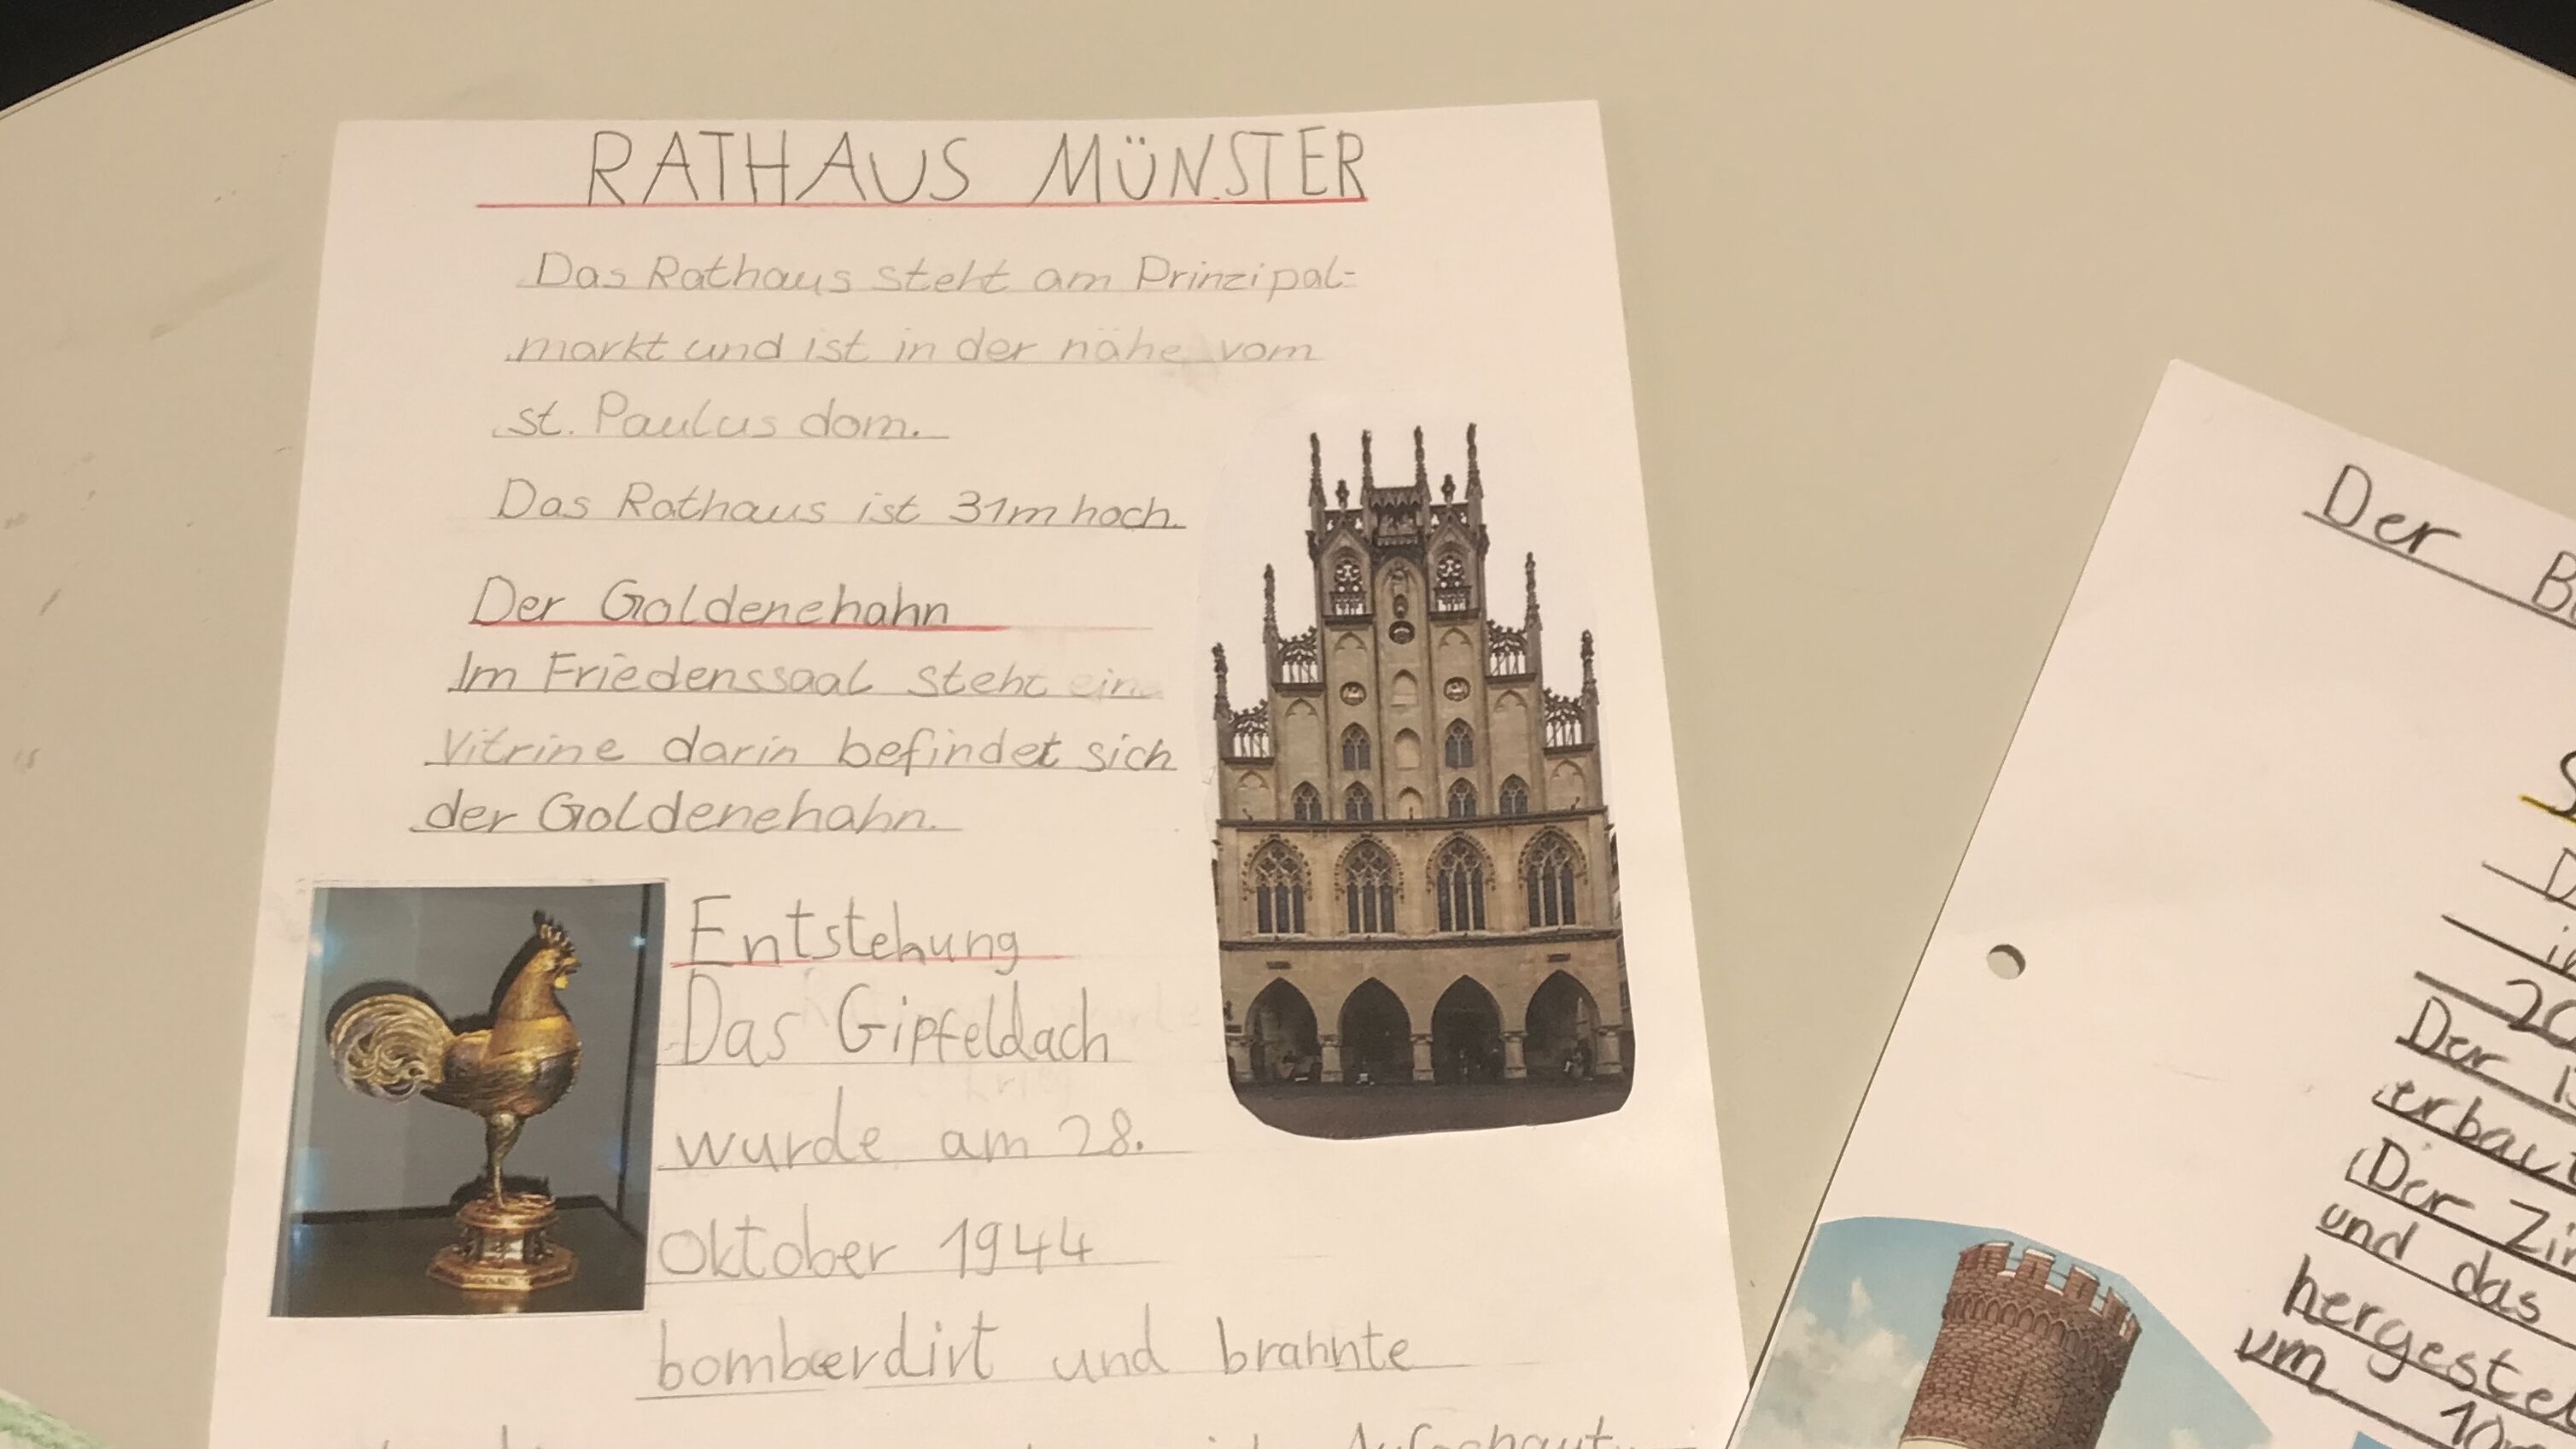 RATHAUS MÜNSTER
Das Rathaus steht am Prinzipal-
markt und ist in der nähe vom
st. Paulus dom.
Das Rathaus ist 31m hoch.
Der Goldenehahn
Im Friedenssaal steht ein
Vitrine darin befindet sich
der Goldenehahn.
Entstehung
Das Gipfeldach
wurde am 28.
Oktober 1944
bomberdirt und brannte
Der
Der
erbaut
Der
und das
um